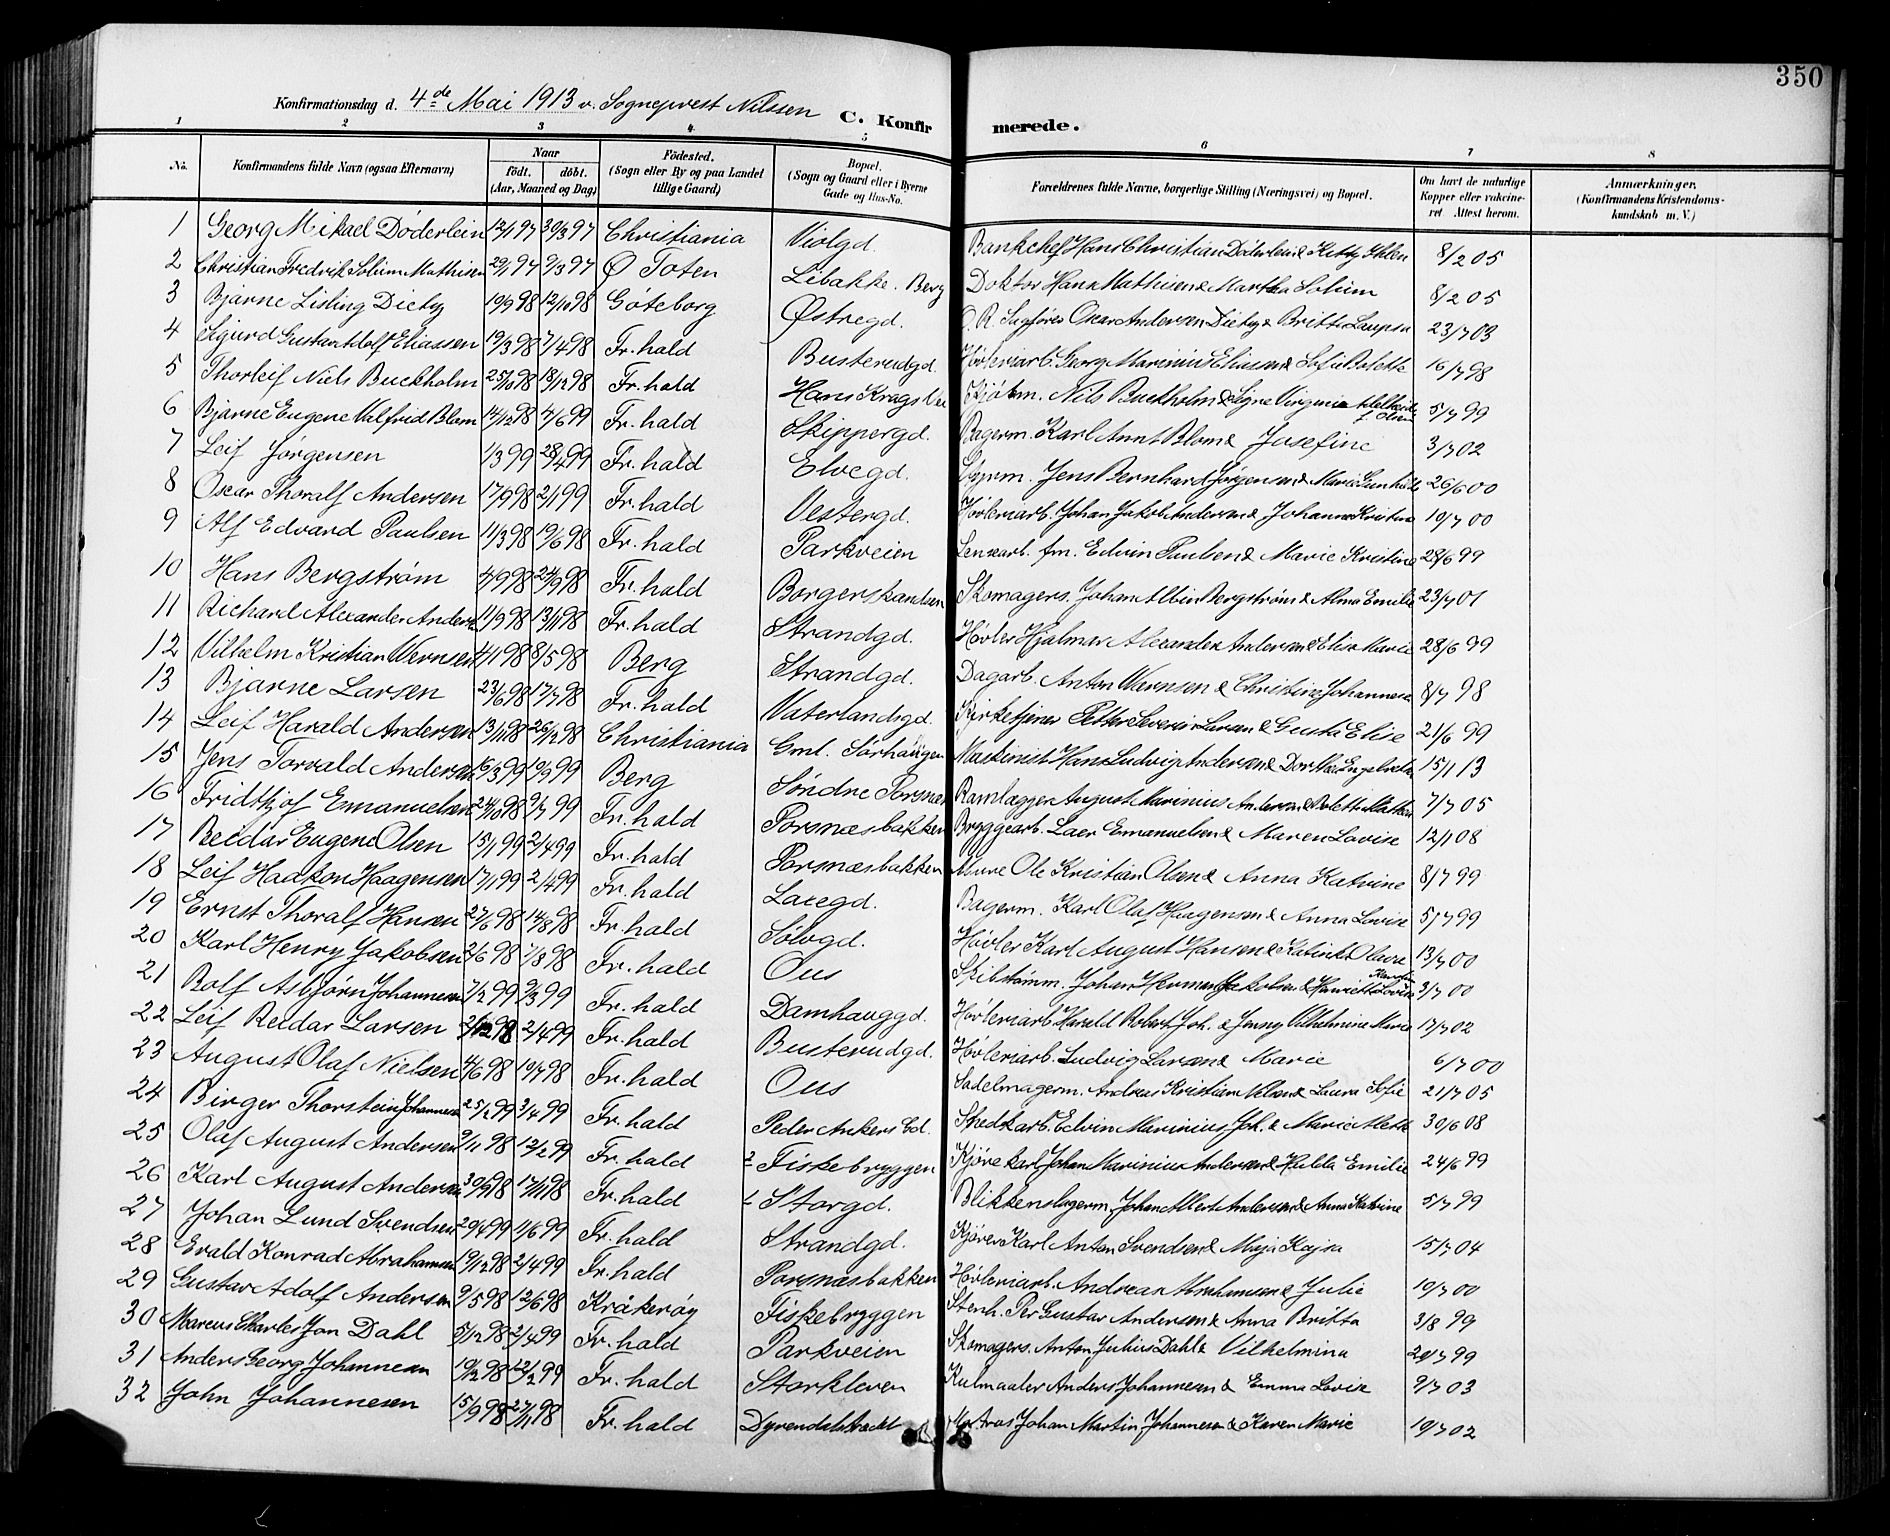 350
Konfirmationsdag d. 4de Mai 1913 v. Sogneprest Nilssen C. Konfirmerede.
1 2 3 4 5 6 7 8
No. Konfirmandens fulde Navn (ogsaa Efternavn) Naar født. døbt. (Aar, Maaned og Dag) Födested. (Sogn eller By og paa Landet tillige Gaard) Bopæl. (Sogn og Gaard eller i Byerne Gade og Hus-No. Forældrenes fulde Navne, borgerlige Stilling (Næringsvei) og Bopæl. Om havt de naturlige Kopper eller vakcineret. Attest herom. Anmærkninger. (Konfirmandens Kristendomskundskab m. V.)
1 Georg Mikael Døderlein 12/1 97 30/3 97 Christiania Violgd. Bankchef Hans Christian Døderlein & Kitty Ihlen 8/2 05
2 Christian Fredrik Solum Mathisen 29/1 97 9/3 97 Ø Toten Libakke. Berg Doktor Hans Mathisen & Martha Solum 8/2 05
3 Bjarne Lisling Dietz 19/9 98 12/10 98 Göteborg Østregd. O. R. Sagfører Oscar Andersen & Britta 23/7 03
4 Sigurd Gustav Adolf Eliassen 19/3 98 7/4 98 Fr.hald Busterudgd. Høvleriarb. Georg Marinius Eliassen & Sofie Bolette 16/7 98
5 Thorleif Niels Buckholm 25/10 98 18/12 98 Fr.hald Hans Krags Kjøbm. Nils Buckholm & Signe Virginia 5/7 99
6 Bjarne Eugene Valfrid Blom 14/12 98 4/6 99 Fr.hald Skippergd. Bagerm. Karl Annt Blom & Josefine 3/7 02
7 Leif Jørgensen 1/3 99 28/4 99 Fr.hald Elvegd. Styrm. Jens Bernhard Jørgensen & Marie Gunhilde 26/6 00
8 Oscar Thoralf Andersen 17/9 98 2/1 99 Fr.hald Vestergd. Høvleriarb. Johan Jakob Andersen & Johanne Kristine 19/7 00
9 Alf Edvard Paulsen 11/3 98 19/6 98 Fr.hald Parkveien fm. Edvin Paulsen & Marie Kristine 28/6 99
10 Hans Bergstrøm 4/9 98 24/9 98 Fr.hald Borgerskandsen Skomagers. Johan Albin Bergstrøm & Alma Emilie 23/7 01
11 Richard Alexander Anders 11/9 98 13/11 98 Fr.hald Strandgd. Høvler Hjalmar Alexander Andersen & Elise Marie 28/6 99
12 Vilhelm Kristian Wernsen 4/1 98 8/5 98 Berg Strandgd. Dagarb. Anton Wernsen & Christine Johannesen 8/7 98
13 Bjarne Larsen 23/6 98 17/7 98 Fr.hald Vaterlandsgd. Kirketjener Petter Severin Larsen & Gusta Elise 21/6 99
14 Leif Harald Andersen 13/11 98 26/12 98 Christiania Gml. Sørhaugen Maskinist Hans Ludvig Andersen & Dorthea 15/1 13
15 Jens Torvald Andersen 16/3 99 10/9 99 Berg Søndre Porsnæs Ramlægger August Marinius Andersen & Bolette Mathea 7/7 05
16 Fridthjof Emanuelsen 24/10 98 9/7 99 Fr.hald Porsnæsbakken Bryggearb. Laer Emanuelsen & Maren Lovise 12/1 08
17 Reidar Eugene Olsen 15/1 99 2/4 99 Fr.hald Porsnæsbakken Murer Ole Kristian Olsen & Anna Katrine 8/7 99
18 Leif Haakon Haagensen 17/1 99 2/4 99 Fr.hald Lacegd. Bagerm. Karl Olaf Haagensen & Anna Lovise 5/7 99
19 Ernst Thoralf Hansen 27/6 98 14/8 98 Fr.hald Sølvgd. Høvler Karl August Hansen & Katinka Olava 13/7 00
20 Karl Henry Jakobsen 2/6 98 7/8 98 Fr.hald Ous Skibstømm. Johan Herman Jakobsen & Henriette Lovise 3/7 00
21 Rolf Asbjørn Johannesen 7/2 99 9/3 99 Fr.hald Damhauggd. Høvleriarb. Harald Robert Joh. & Jenny Vilhelmine Marie 17/7 02
22 Leif Reidar Larsen 2/12 98 2/4 99 Fr.hald Busterudgd. Høvleriarb. Ludvig Larsen & Marie 6/7 00
23 August Olaf Nielsen 4/6 98 10/7 98 Fr.hald Ous Sadelmagerm. Andreas Kristian Nilsen & Laura Sofie 21/7 05
24 Birger Thorstein Johannesen 25/2 99 3/4 99 Fr.hald Peder Ankers Gd. Stedkarb. Edvin Marinius Joh. & Marie Alette 30/6 08
25 Olaf August Andersen 9/11 98 12/2 99 Fr.hald Fiskebryggen Kjørekarl Johan Marinius Andersen & Hulda Emilie 24/6 99
26 Karl August Andersen 30/9 98 17/11 98 Fr.hald Storgd. Blikkenslagerm. Johan Albert Andersen & Anna Katrine 5/7 99
27 Johan Lund Svendsen 29/4 99 4/6 99 Fr.hald Strandgd. Kjører Karl Anton Svendsen & Maja Kajsa 15/7 04
28 Evald Konrad Abrahamsen 19/12 98 2/4 99 Fr.hald Porsnæsbakken Høvleriarb. Andreas Abrahamsen & Julie 19/7 00
29 Gustav Adolf Andersen 9/5 98 12/6 98 Kråkerøy Fiskebryggen Stenh. Per Gustav Andersen & Anna Britta 3/8 99
30 Marcus Charles Jon Dahl 5/12 98 2/4 99 Fr.hald Parkveien Skomagers. Anton Julius Dahl & Vilhelmina 20/7 99
31 Anders Georg Johannesen 10/12 98 12/2 99 Fr.hald Storkleven Kulmaaler Anders Johannesen & Emma Lovise 9/7 03
32 John Johannesen 15/9 98 27/11 98 Fr.hald Dyrendalstrædet Johan Martin Johannesen & Karen Marie 19/7 02